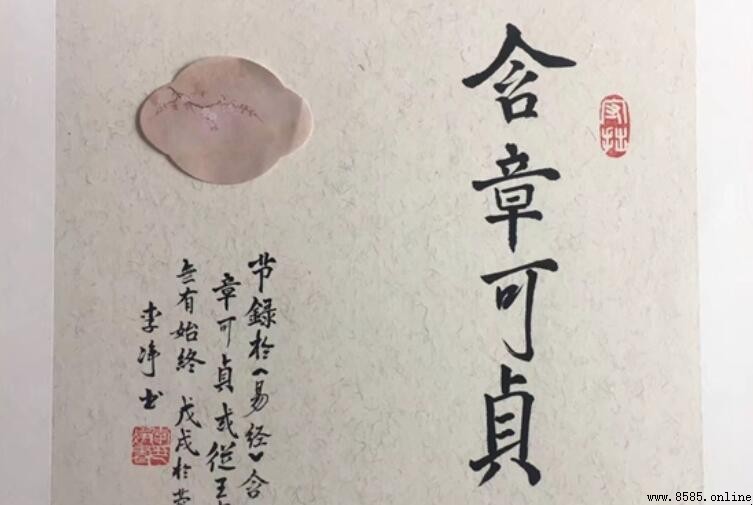 含章可貞
守拙
节録於《易经》含
章可貞或從王
無有始終 戊戌於
李净书
www.8585.online